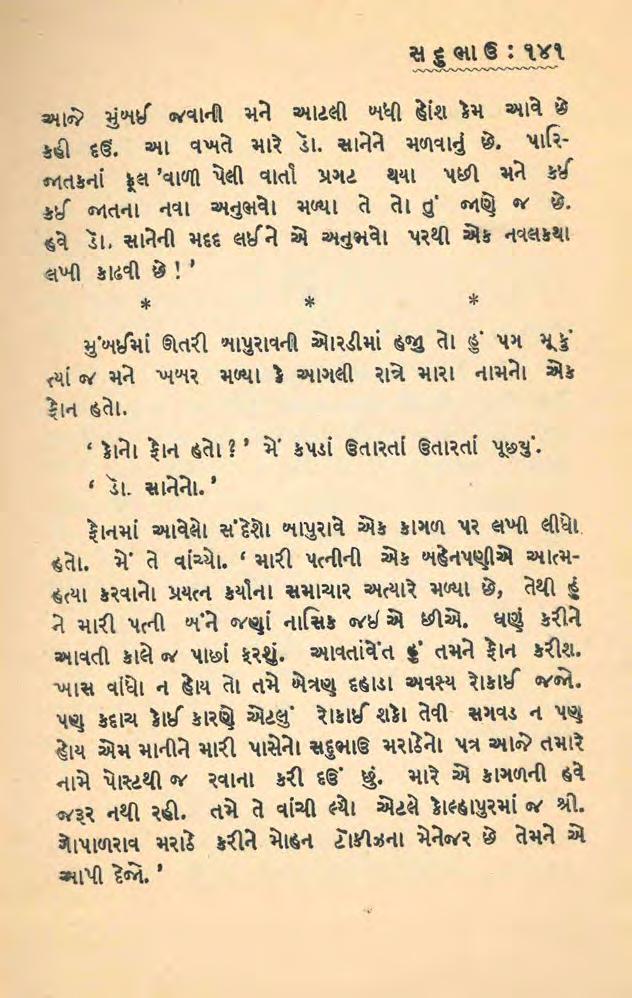 સદુભાઉ : ૧૪૧
આજે મુંબઈ જવાની મને આટલી બધી હોંશ કેમ આવે છે
કહી દઉં. આ વખતે મારે ડૉ. સાનેને મળવાનું છે. પારિ-
જાતકનાં ફૂલ 'વાળી પેલી વાર્તા પ્રગટ થયા પછી મને કઈ
કઈ જાતના નવા અનુભવો મળ્યા તે તો તું જાણે જ છે.
હવે ડૉ. સાનેની મદદ લઈને એ અનુભવો પરથી એક નવલકથા
લખી કાઢવી છે ! '
* * *
મુંબઈમાં ઊતરી બાપુરાવની ઓરડીમાં હજુ તો હું પગ મૂકું
ત્યાં જ મને ખબર મળ્યા કે આગલી રાત્રે મારા નામનો એક
ફોન હતો.
' કોનો ફોન હતો ? ' મેં કપડાં ઉતારતાં ઉતારતાં પૂછ્યું.
' ડૉ. સાનેનો. '
ફોનમાં આવેલો સંદેશો બાપુરાવે એક કાગળ પર લખી લીધો
હતો. મેં તે વાંચ્યો. ' મારી પત્નીની એક બહેનપણીએ આત્મ-
હત્યા કરવાનો પ્રયત્ન કર્યાના સમાચાર અત્યારે મળ્યા છે, તેથી હું
ને મારી પત્ની બંને જણાં નાસિક જઇએ છીએ. ઘણું કરીને
આવતી કાલે જ પાછાં ફરશું. આવતાંવેંત હું તમને ફોન કરીશ.
ખાસ વાંધો ન હોય તો તમે બેત્રણ દહાડા અવશ્ય રોકાઈ જજો.
પણ કદાચ કોઈ કારણે એટલું રોકાઈ શકો તેવી સગવડ ન પણ
હોય એમ માનીને મારી પાસેનો સદુભાઉ મરાઠેનો પત્ર આજે તમારે
નામે પોસ્ટથી જ રવાના કરી દઉં છું. મારે એ કાગળની હવે
જરૂર નથી રહી. તમે તે વાંચી લ્યો એટલે કોલ્હાપુરમાં જ શ્રી.
ગોપાળરાવ મરાઠે કરીને મોહન ટૉકીઝના મેનેજર છે તેમને એ
આપી દેજો. '